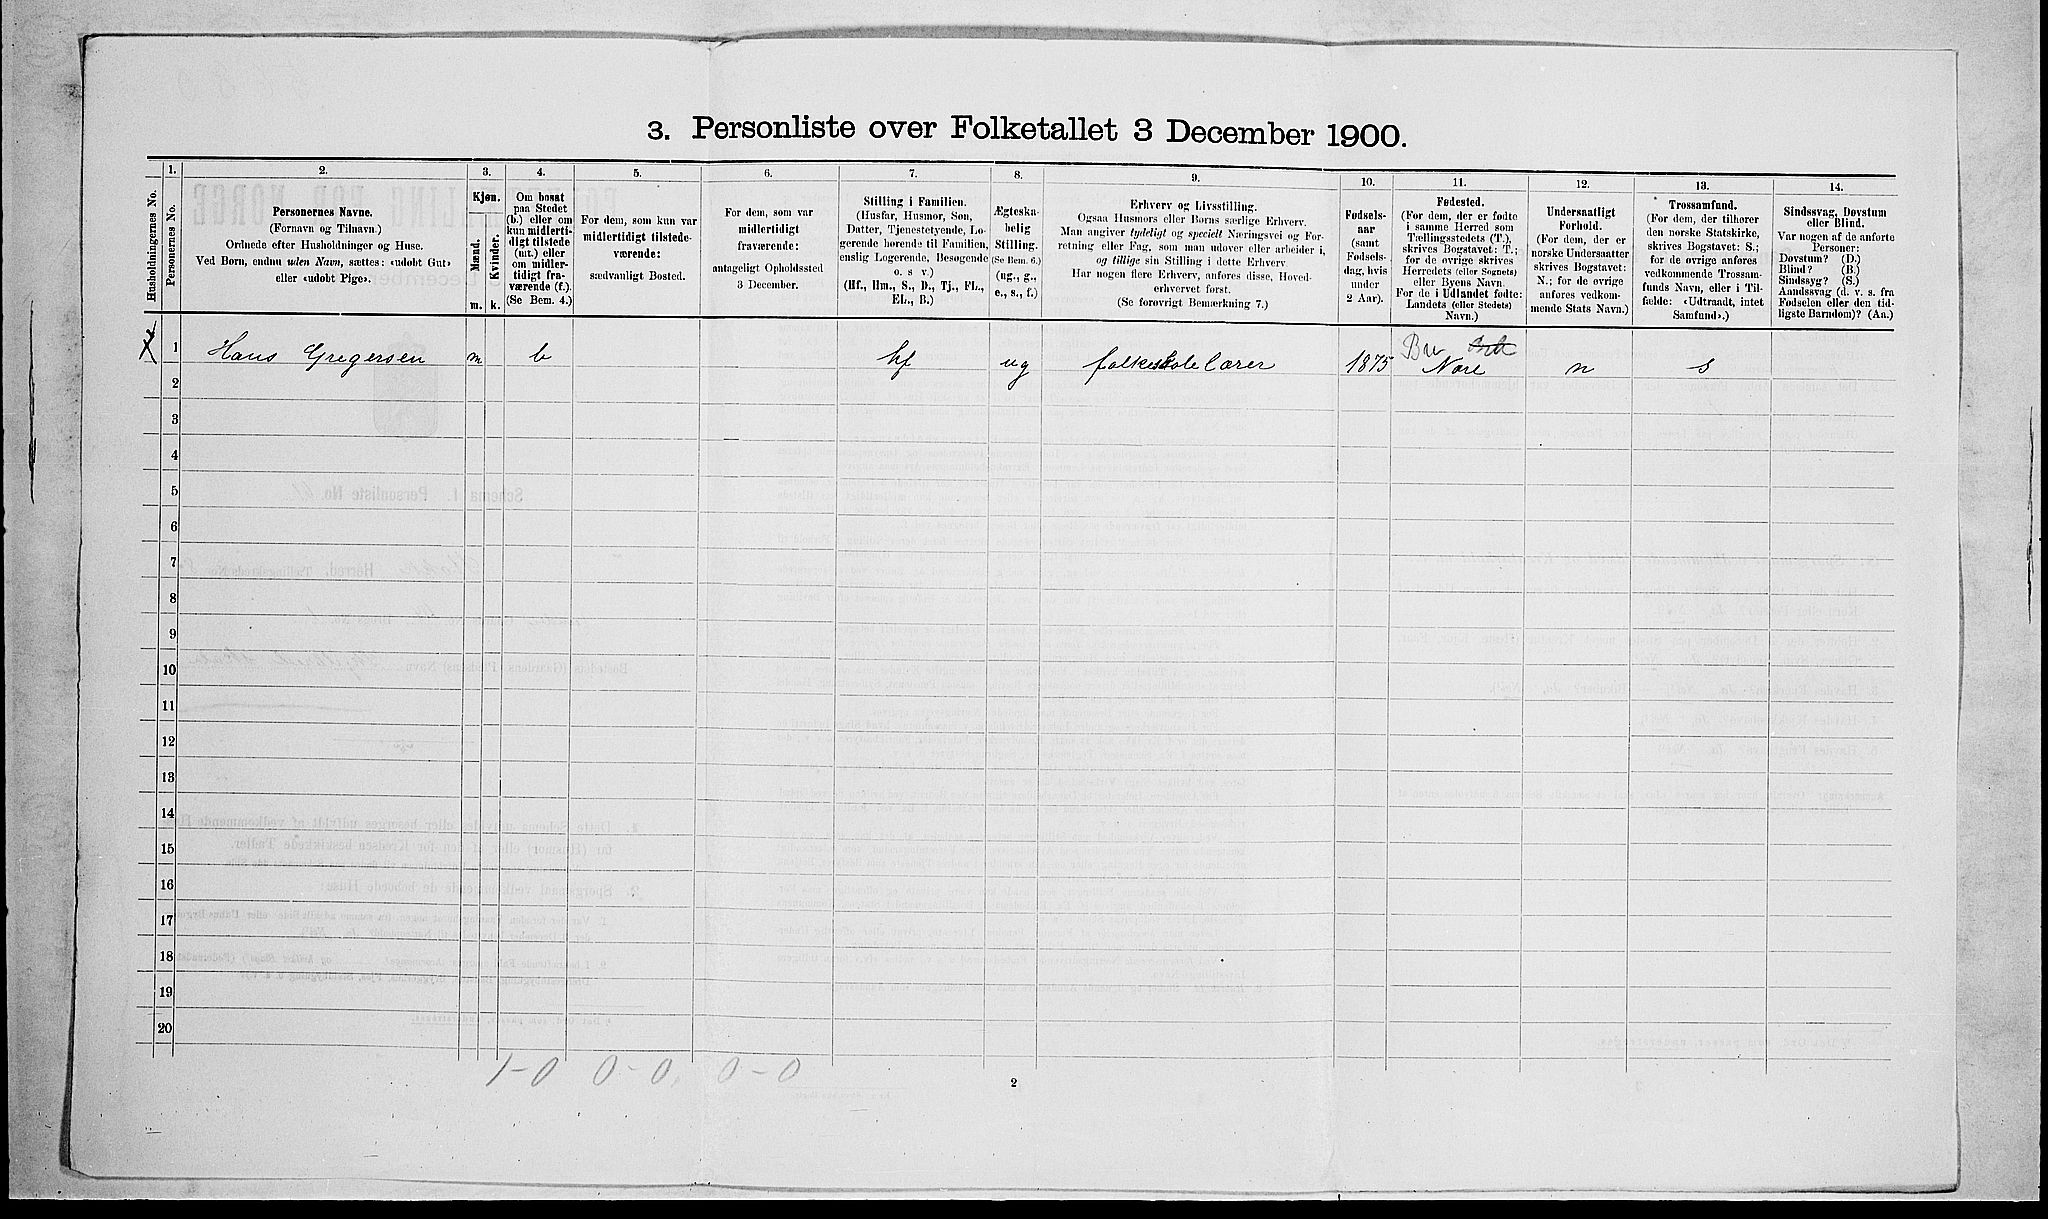 3. Personliste over Folketallet 3 December 1900.
Husholdningernes No.
1.
Personernes No.
2.
Personernes Navne.
(Fornavn og Tilnavn.)
Ordnede efter Husholdninger og Huse.
Ved Børn, endnu uden Navn, sættes: «udøbt Gut»
eller «udøbt Pige».
3.
Kjøn.
Mænd.
Kvinder.
m. k.
4.
Om bosat
paa Stedet
(b.) eller om
kun midlerti-
digt tilstede
(mt.) eller
om midler-
tidigt fra-
værende (f.).
(Se Bem. 4.)
5.
For dem, som kun var
midlertidigt tilstede-
værende:
sædvanligt Bosted.
6.
For dem, som var
midlertidigt
fraværende:
antageligt Opholdssted
3 December.
7.
Stilling i Familien.
(Husfar, Husmor, Søn,
Datter, Tjenestetyende, Lo-
gerende hørende til Familien,
enslig Logerende, Besøgende
o. s v.)
(Hf., Hm., S., D., Tj., FL.,
EL., B.)
8.
Ægteska-
belig
Stilling.
(Se Bem. 6.)
(ug., g.,
e., s., f.)
9.
Erhverv og Livsstilling.
Ogsaa Husmors eller Børns særlige Erhverv.
Man angiver tydeligt og specielt Næringsvei og For-
retning eller Fag, som man udøver eller arbeider i,
og tillige sin Stilling i dette Erhverv
Har nogen flere Erhverv, anføres disse, Hoved-
erhvervet først.
(Se forøvrigt Bemærkning 7.)
10.
Fødsels-
aar
(samt
Fødsels-
dag, hvis
under
2 Aar).
11.
Fødested.
(For dem, der er fødte
i samme Herred som
Tællingsstedets (T.),
skrives Bogstavet: T.;
for de øvrige skrives
Herredets (eller Sognets)
eller Byens Navn.
For de i Udlandet fødte:
Landets (eller Stedets)
Navn.)
12.
Undersaatligt
Forhold.
(For dem, der er
norske Undersaatter
skrives Bogstavet:
N.; for de øvrige
anføres vedkom-
mende Stats Navn.)
13.
Trossamfund.
(For dem, der tilhører
den norske Statskirke,
skrives Bogstavet: S.;
for de øvrige anføres
vedkommende Trossam-
funds Navn, eller i Til-
fælde: «Udtraadt, intet
Samfund».)
14.
Sindssvag, Døvstum
eller Blind.
Var nogen af de anførte
Personer:
Døvstum? (D.)
Blind? (B.)
Sindssyg? (S.)
Aandssvag (d. v. s. fra
Fødselen eller den tid-
ligste Barndom)? (Aa.)
1 Hans Gregersen m b hf ug folkeskolelærer 1875 Nore n s
2
3
4
5
6
7
8
9
10
11
12
13
14
15
16
17
18
19
20
1-0 0-0 0-0
2